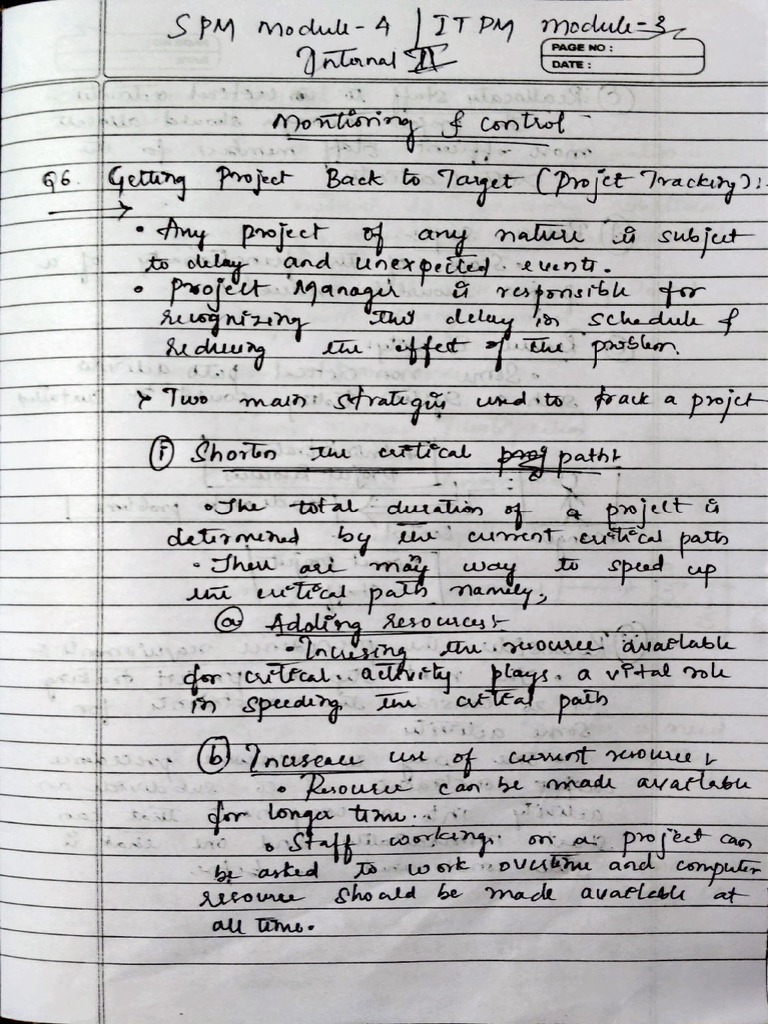 SPM Module-4 / ITPM Module-3
Internal II
PAGE NO :
DATE :
Monitioring & control
Q6. Getting Project Back to Target (Projct Tracking):
• Any project of any nature is subject
to delay and unexpected events.
• Project Manager is responsible for
recognizing this delay in schedule &
reducing the effect of the problem.
➤ Two main strategies used to track a projct
(i) Shorten the critical path:
• The total duration of a project is
determined by the current critical path
• There are many way to speed up
the critical path namely,
(a) Adding resources:
• Incresing the resource available
for critical activity plays a vital role
in speeding the critical path
(b) Increase use of current resource:
• Resource can be made available
for longer time.
• Staff working on a project can
be asked to work overtime and computer
resource should be made available at
all time.